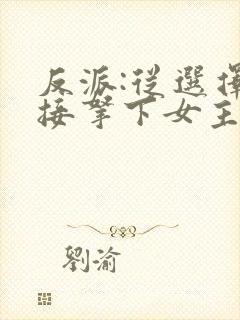 反派:從選擇
接拏下女主
劉渝